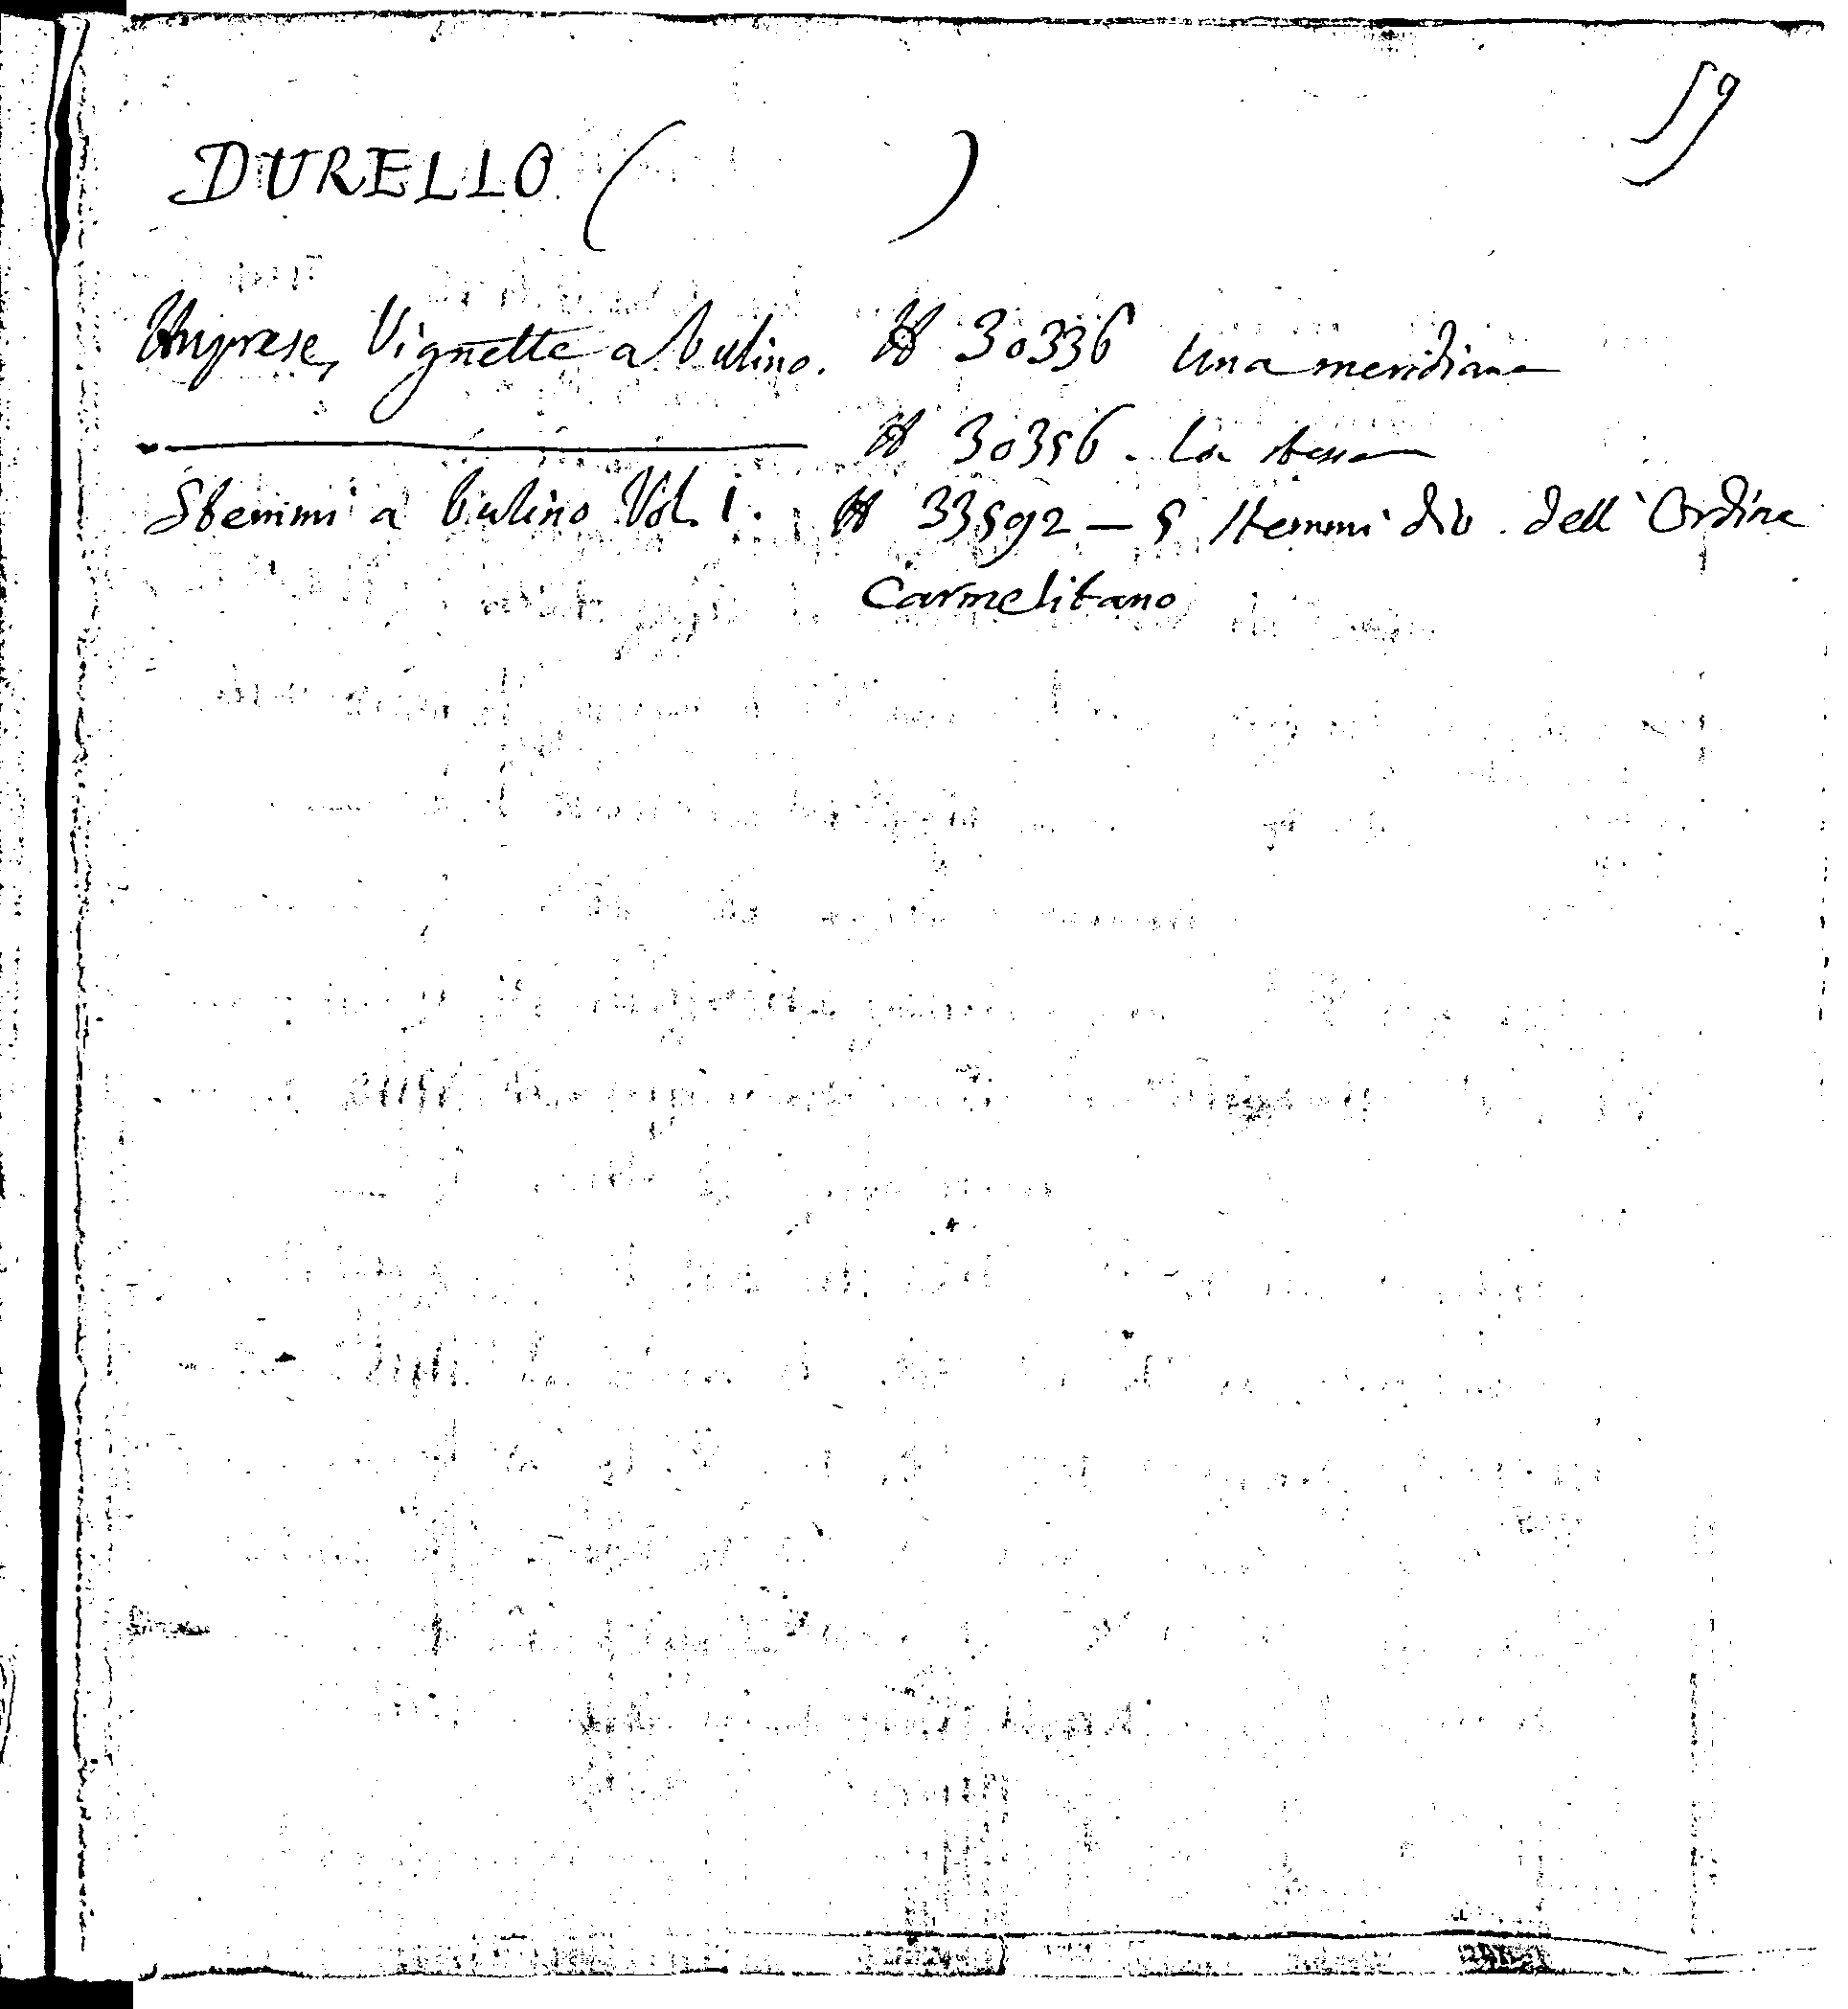 59
DURELLO ( )
Imprese, Vignette a bulino. N 30336 Una meridiana
N 30356. La stessa
Stemmi a bulino Vol. 1. N 33592 — 5 stemmi div. dell'Ordine
Carmelitano